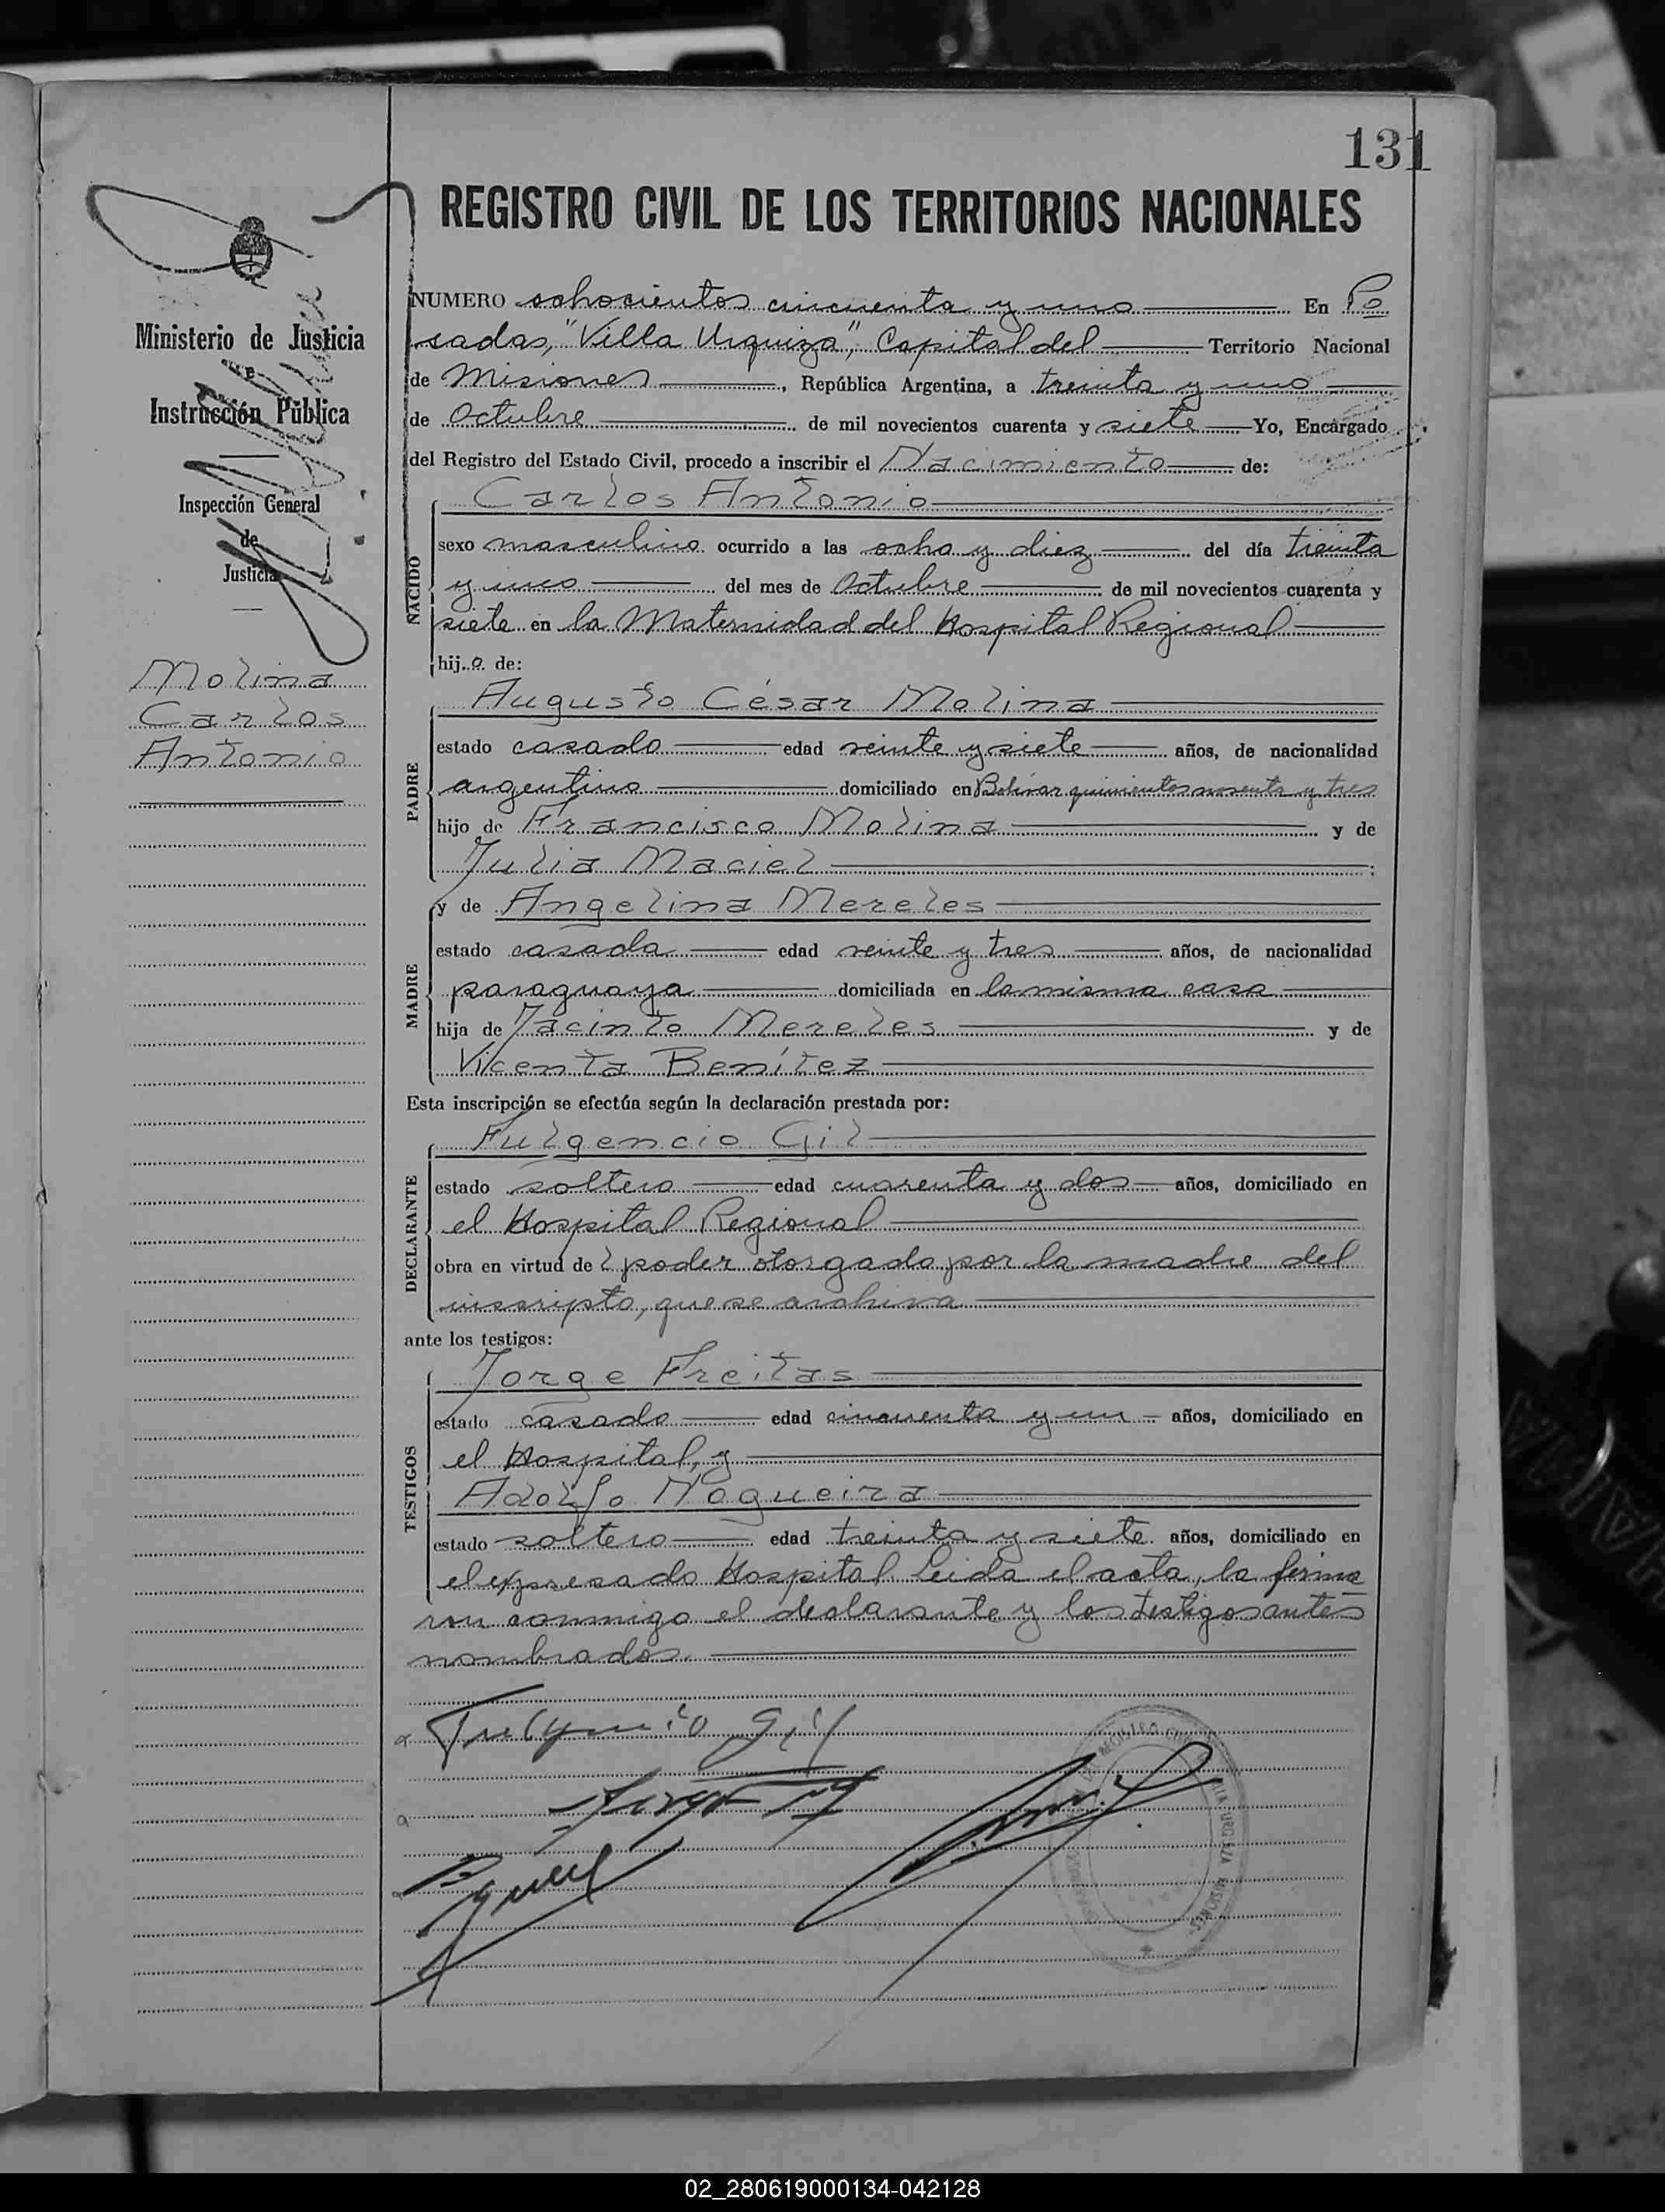 131
REGISTRO CIVIL DE LOS TERRITORIOS NACIONALES
Ministerio de Justicia
e
Instrucción Pública
Inspección General
de
Justicia
Molina
Carlos
Antonio
NUMERO ochocientos cincuenta y uno En Po
sadas, "Villa Urquiza", Capital del Territorio Nacional
de Misiones, República Argentina, a treinta y uno
de Octubre de mil novecientos cuarenta y siete Yo, Encargado
del Registro del Estado Civil, procedo a inscribir el Nacimiento de:
NACIDO
Carlos Antonio
sexo masculino ocurrido a las ocho y diez del día treinta
y uno del mes de Octubre de mil novecientos cuarenta y
siete en la Maternidad del Hospital Regional
hijo de:
PADRE
Augusto César Molina
estado casado edad veinte y siete años, de nacionalidad
argentino domiciliado en Bolívar quinientos noventa y tres
hijo de Francisco Molina y de
Julia Maciel
MADRE
y de Angelina Mereles
estado casada edad veinte y tres años, de nacionalidad
paraguaya domiciliada en la misma casa
hija de Jacinto Mereles y de
Vicenta Benítez
Esta inscripción se efectúa según la declaración prestada por:
DECLARANTE
Fulgencio Gil
estado soltero edad cuarenta y dos años, domiciliado en
el Hospital Regional
obra en virtud de poder otorgado por la madre del
inscripto, que se archiva
ante los testigos:
TESTIGOS
Jorge Freitas
estado casado edad cincuenta y un años, domiciliado en
el Hospital, y
Adolfo Nogueira
estado soltero edad treinta y siete años, domiciliado en
el expresado Hospital Leida el acta, la firma
ron conmigo el declarante y los testigos antes
nombrados.
Fulgencio Gil
02_280619000134-042128